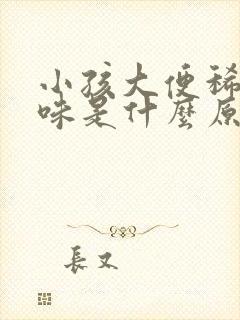 小孩大便稀
味是什麼原
長又